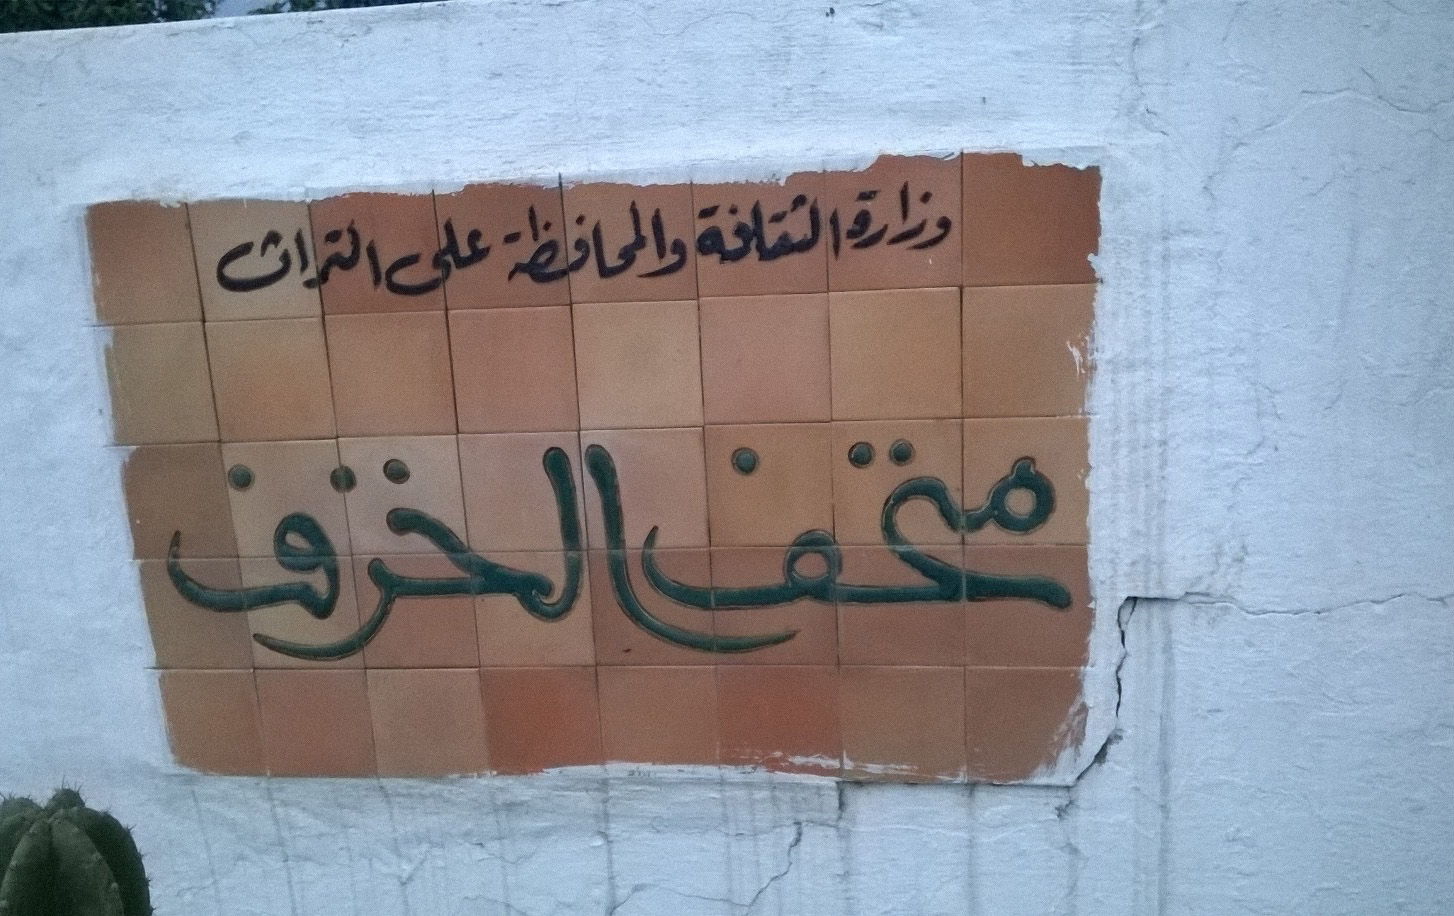 وزارة الثقافة والمحافظة على التراث
متحف الخزف